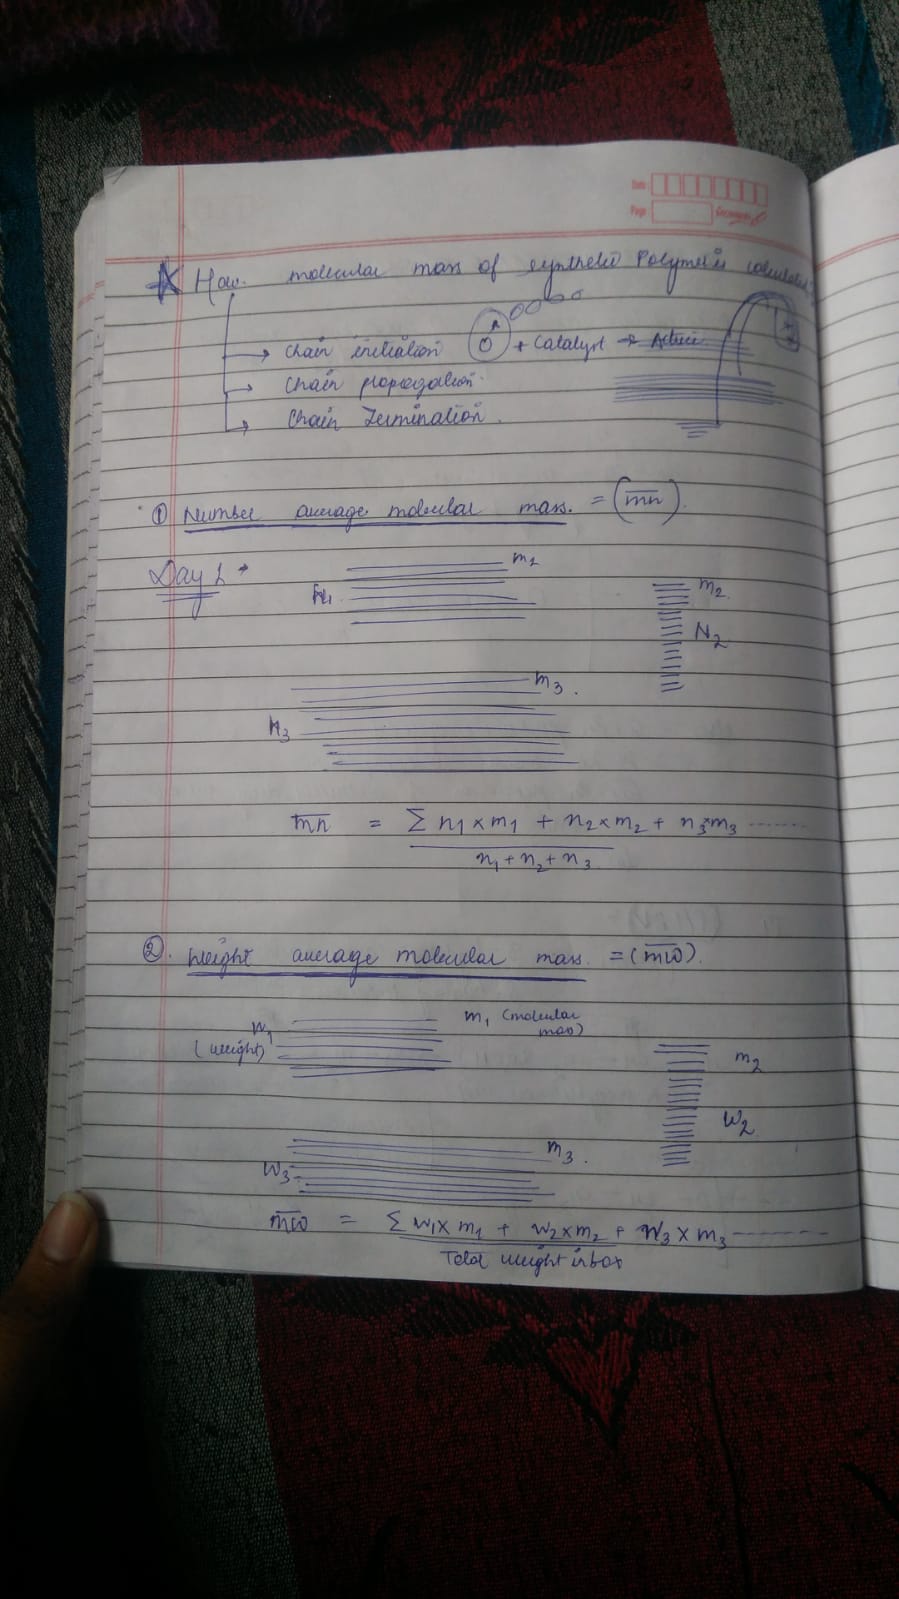 Date
Page
* How molecular mass of synthetic Polymer is calculated
→ chain initiation + Catalyst → Active
→ chain propagation.
→ chain Termination.
① Number average molecular mass. = (m̅n̅)
Day 1 →
m2
n1
m2
N2
m3.
n3
m̅n̅ = Σ n1 × m1 + n2 × m2 + n3 × m3 ------
n1 + n2 + n3
②. Weight average molecular mass. = (m̅w̅).
W1
(weight)
m1 (molecular
mass)
m2
W2
m3.
W3
m̅w̅ = Σ W1 × m1 + W2 × m2 + W3 × m3 ------
Total weight in box